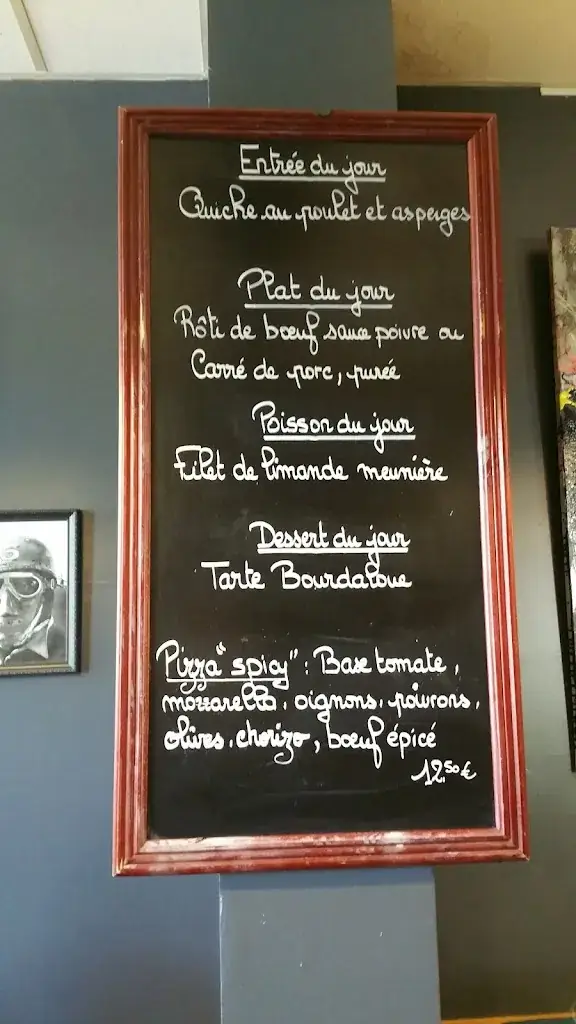 Entrée du jour
Quiche au poulet et asperges
Plat du jour
Rôti de bœuf sauce poivre ou
Carré de porc, purée
Poisson du jour
Filet de limande meunière
Dessert du jour
Tarte Bourdaloue
Pizza "spicy" : Base tomate,
mozzarella, oignons, poivrons,
olives, chorizo, bœuf épicé
12.50 €